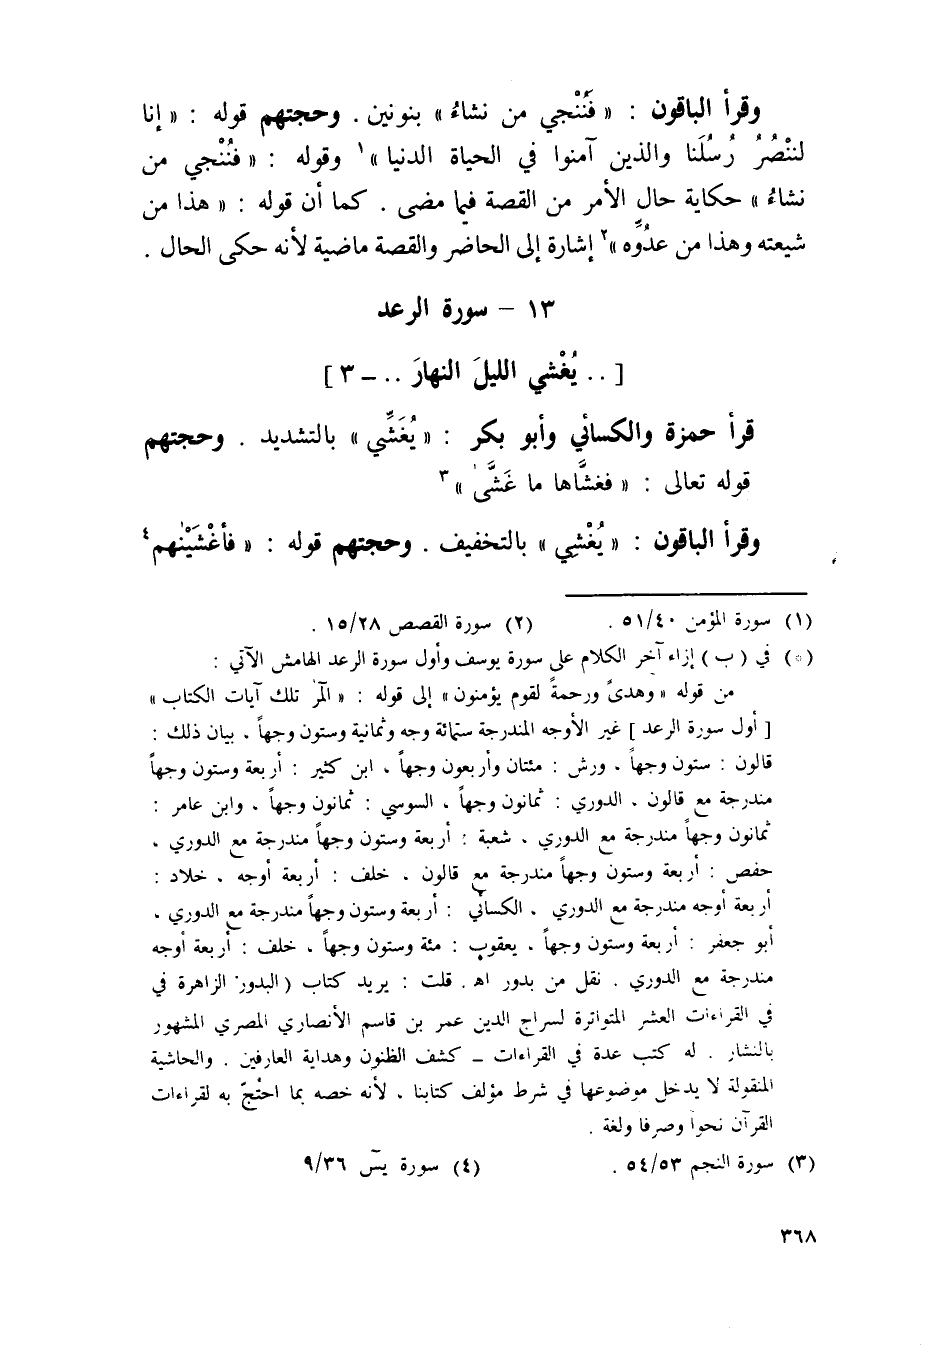 وقرأ الباقون : « فَنُنْجي من نشاءُ » بنونين . وحجتهم قوله : « إنا
لننْصُرُ رُسُلَنا والذين آمنوا في الحياة الدنيا »١ وقوله : « فنُنْجي من
نشاءُ » حكاية حال الأمر من القصة فيما مضى . كما أن قوله : « هذا من
شيعته وهذا من عدُوِّه »٢ إشارة إلى الحاضر والقصة ماضية لأنه حكى الحال .
١٣ – سورة الرعد
[ .. يُغْشي الليلَ النهارَ .. – ٣ ]
قرأ حمزة والكسائي وأبو بكر : « يُغَشِّي » بالتشديد . وحجتهم
قوله تعالى : « فغشَّاها ما غَشَّىٰ »٣
وقرأ الباقون : « يُغْشِي » بالتخفيف . وحجتهم قوله : « فأغْشَيْنٰهم٤
(١) سورة المؤمن ٥١/٤٠ . (٢) سورة القصص ١٥/٢٨ .
(*) في ( ب ) إزاء آخر الكلام على سورة يوسف وأول سورة الرعد الهامش الآتي :
من قوله « وهدىً ورحمةً لقوم يؤمنون » إلى قوله : « آلمرٰ تلك آيات الكتاب »
[ أول سورة الرعد ] غير الأوجه المندرجة ستمائة وجه وثمانية وستون وجهاً . بيان ذلك :
قالون : ستون وجهاً . ورش : مئتان وأربعون وجهاً . ابن كثير : أربعة وستون وجهاً
مندرجة مع قالون . الدوري : ثمانون وجهاً . السوسي : ثمانون وجهاً . وابن عامر :
ثمانون وجهاً مندرجة مع الدوري . شعبة : أربعة وستون وجهاً مندرجة مع الدوري .
حفص : أربعة وستون وجهاً مندرجة مع قالون . خلف : أربعة أوجه . خلاد :
أربعة أوجه مندرجة مع الدوري . الكسائي : أربعة وستون وجهاً مندرجة مع الدوري .
أبو جعفر : أربعة وستون وجهاً . يعقوب : مئة وستون وجهاً . خلف : أربعة أوجه
مندرجة مع الدوري . نقل من بدور اه . قلت : يريد كتاب ( البدور الزاهرة في
في القراءات العشر المتواترة لسراج الدين عمر بن قاسم الأنصاري المصري المشهور
بالنشار . له كتب عدة في القراءات – كشف الظنون وهداية العارفين . والحاشية
المنقولة لا يدخل موضوعها في شرط مؤلف كتابنا . لأنه خصه بما احتْجّ به لقراءات
القرآن نحواً وصرفا ولغة .
(٣) سورة النجم ٥٤/٥٣ . (٤) سورة يسٓ ٩/٣٦
٣٦٨